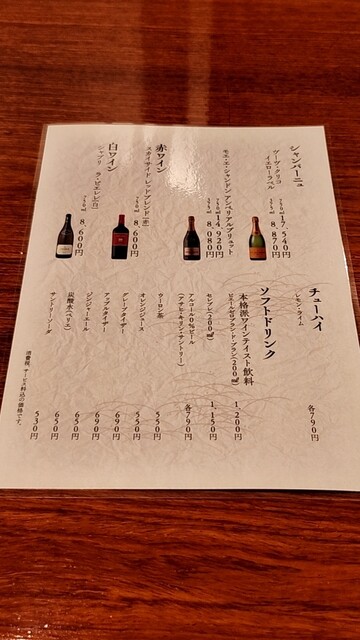 シャンパーニュ
ヴーヴ・クリコ
イエローラベル
750ml 17,540円
375ml 8,870円
モエ・エ・シャンドン アンペリアル ブリュット
750ml 14,920円
375ml 8,080円
赤ワイン
スカイサイド・レッドブレンド(赤)
750ml 8,600円
白ワイン
シャブリ ラ・ピエレレ(白)
750ml 8,600円
チューハイ
レモン・ライム 各790円
ソフトドリンク
本格派ワインテイスト飲料
ピエール・ゼロ ブラン・ド・ブラン(200㎖) 1,200円
セシブレ(200㎖) 1,150円
アルコール0%ビール
(アサヒ・キリン・サントリー) 各790円
ウーロン茶 550円
オレンジジュース 550円
グレープタイザー 690円
アップルタイザー 690円
ジンジャーエール 650円
炭酸水(ペリエ) 650円
サントリーソーダ 530円
消費税、サービス料込の価格です。